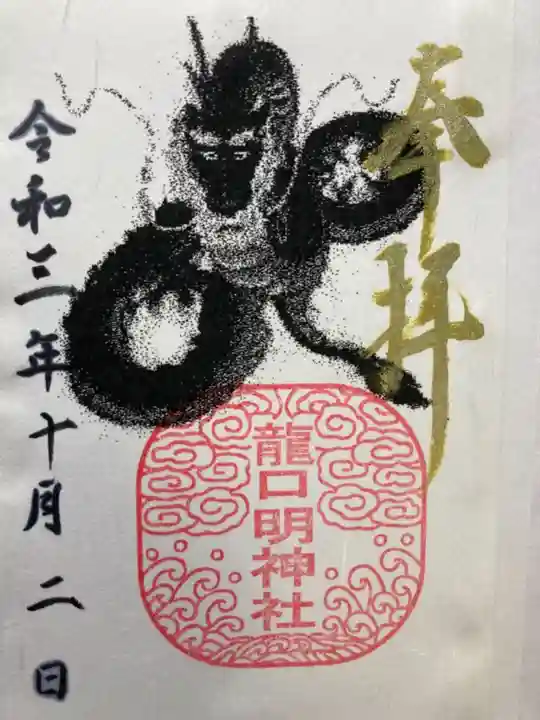 奉拝
龍口明神社
令和三年十月二日